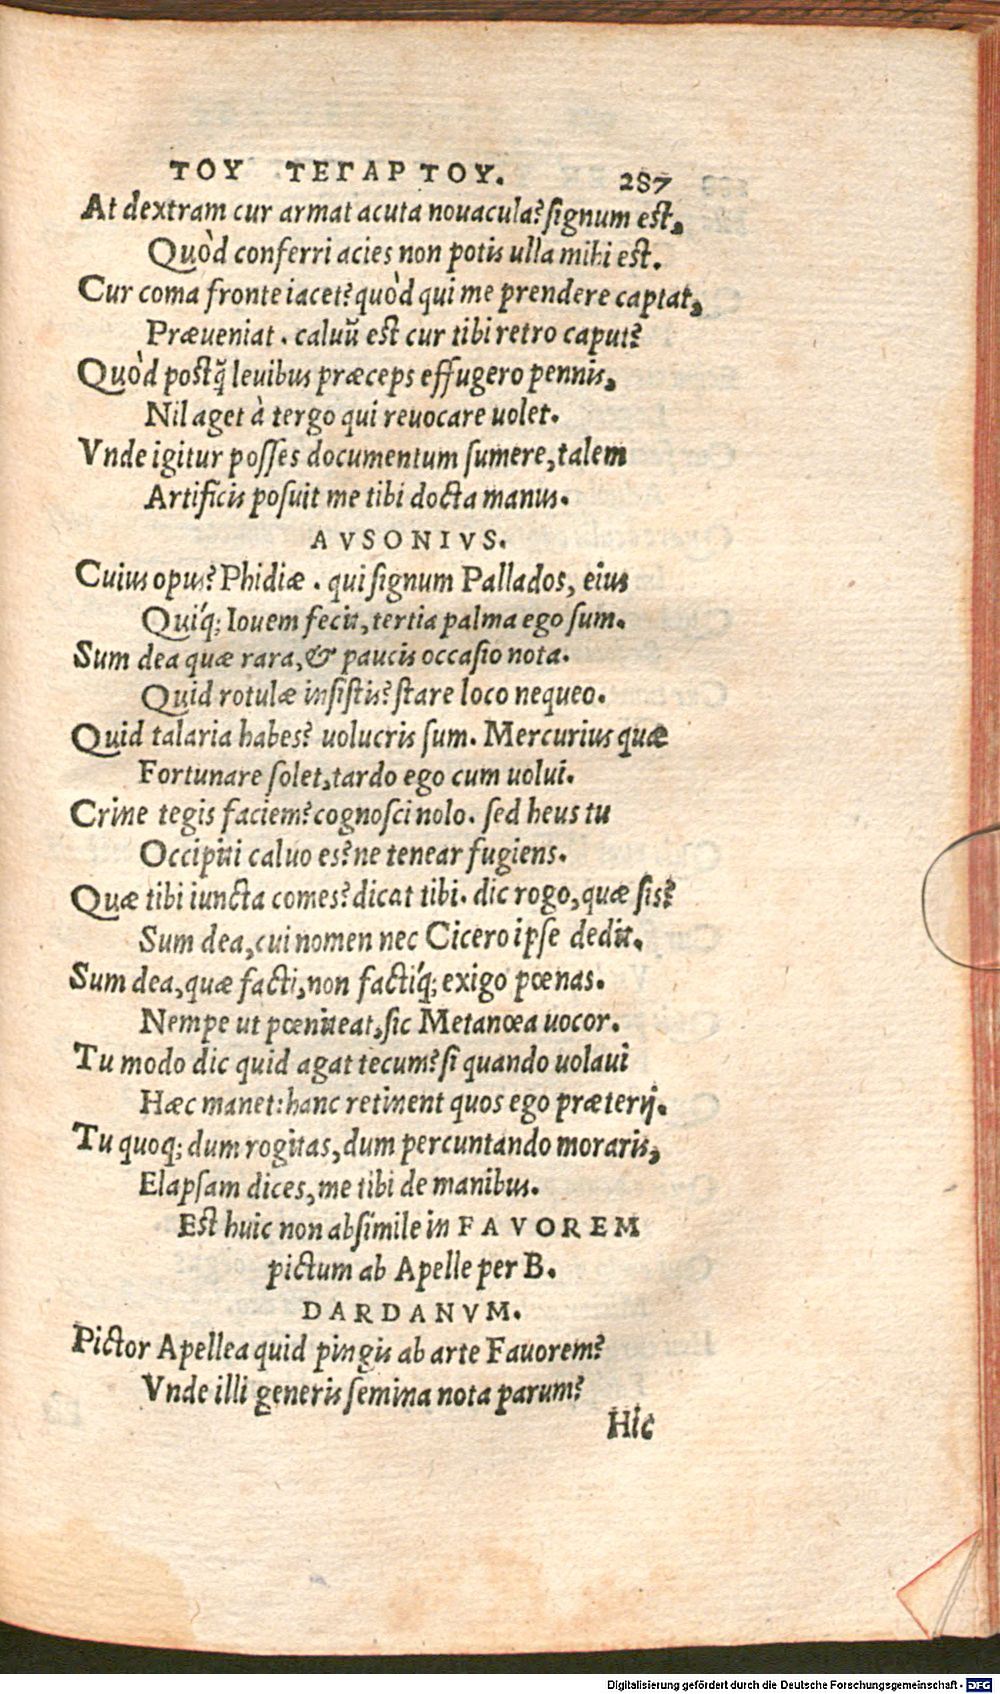 ΤΟΥ ΤΕΓΑΡΤΟΥ. 287
At dextram cur armat acuta nouacula? ſignum eſt,
Quòd conferri acies non potis ulla mihi eſt.
Cur coma fronte iacet? quòd qui me prendere captat,
Præueniat. caluũ eſt cur tibi retro caput?
Quòd poſtq̃ leuibus præceps effugero pennis,
Nil aget à tergo qui reuocare uolet.
Vnde igitur poſſes documentum ſumere, talem
Artificis poſuit me tibi docta manus.
AVSONIVS.
Cuius opus? Phidiæ. qui ſignum Pallados, eius
Quiq́; Iouem fecit, tertia palma ego ſum.
Sum dea quæ rara, & paucis occaſio nota.
Quid rotulæ inſiſtis? ſtare loco nequeo.
Quid talaria habes? uolucris ſum. Mercurius quæ
Fortunare ſolet, tardo ego cum uolui.
Crine tegis faciem? cognoſci nolo. ſed heus tu
Occipiti caluo es? ne tenear fugiens.
Quæ tibi iuncta comes? dicat tibi. dic rogo, quæ ſis?
Sum dea, cui nomen nec Cicero ipſe dedit.
Sum dea, quæ facti, non factiq́; exigo pœnas.
Nempe ut pœniteat, ſic Metanœa uocor.
Tu modo dic quid agat tecum? ſi quando uolaui
Hæc manet: hanc retinent quos ego præterij.
Tu quoq; dum rogitas, dum percuntando moraris,
Elapſam dices, me tibi de manibus.
Eſt huic non abſimile in FAVOREM
pictum ab Apelle per B.
DARDANVM.
Pictor Apellea quid pingis ab arte Fauorem?
Vnde illi generis ſemina nota parum?
Hic
Digitalisierung gefördert durch die Deutsche Forschungsgemeinschaft - DFG